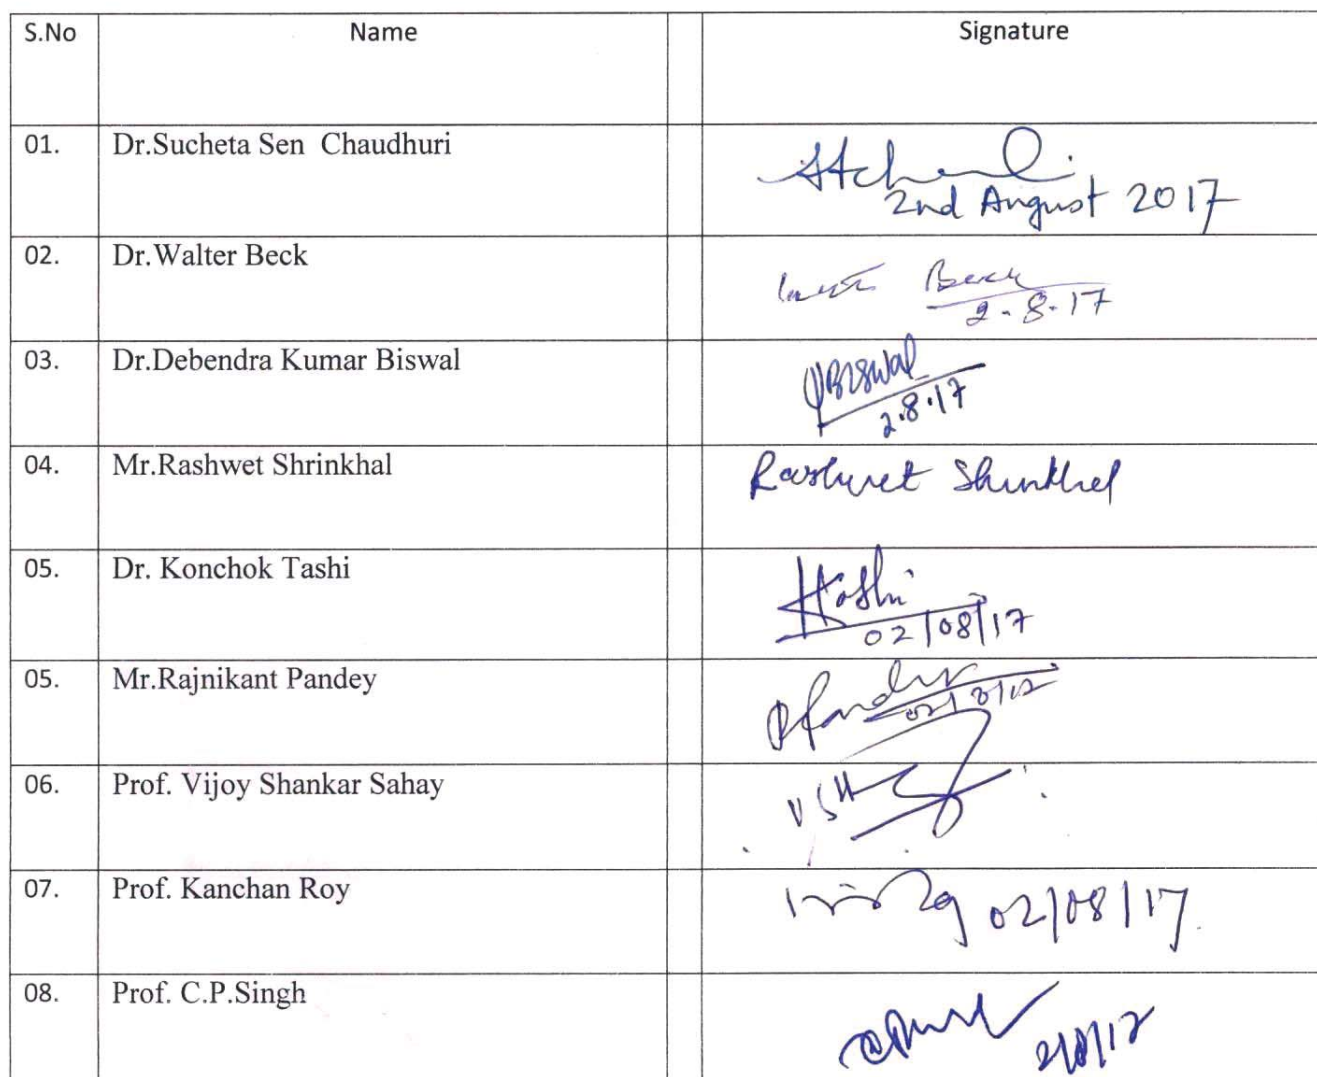 S.No Name Signature
01. Dr.Sucheta Sen Chaudhuri
2nd August 2017
02. Dr.Walter Beck Beck
2-8-17
03. Dr.Debendra Kumar Biswal DBISWAL
2.8.17
04. Mr.Rashwet Shrinkhal Rashwet Shrinkhal
05. Dr. Konchok Tashi KTashi
02/08/17
05. Mr.Rajnikant Pandey RPandey
02/8/17
06. Prof. Vijoy Shankar Sahay
07. Prof. Kanchan Roy 02/08/17
08. Prof. C.P.Singh
2/8/17